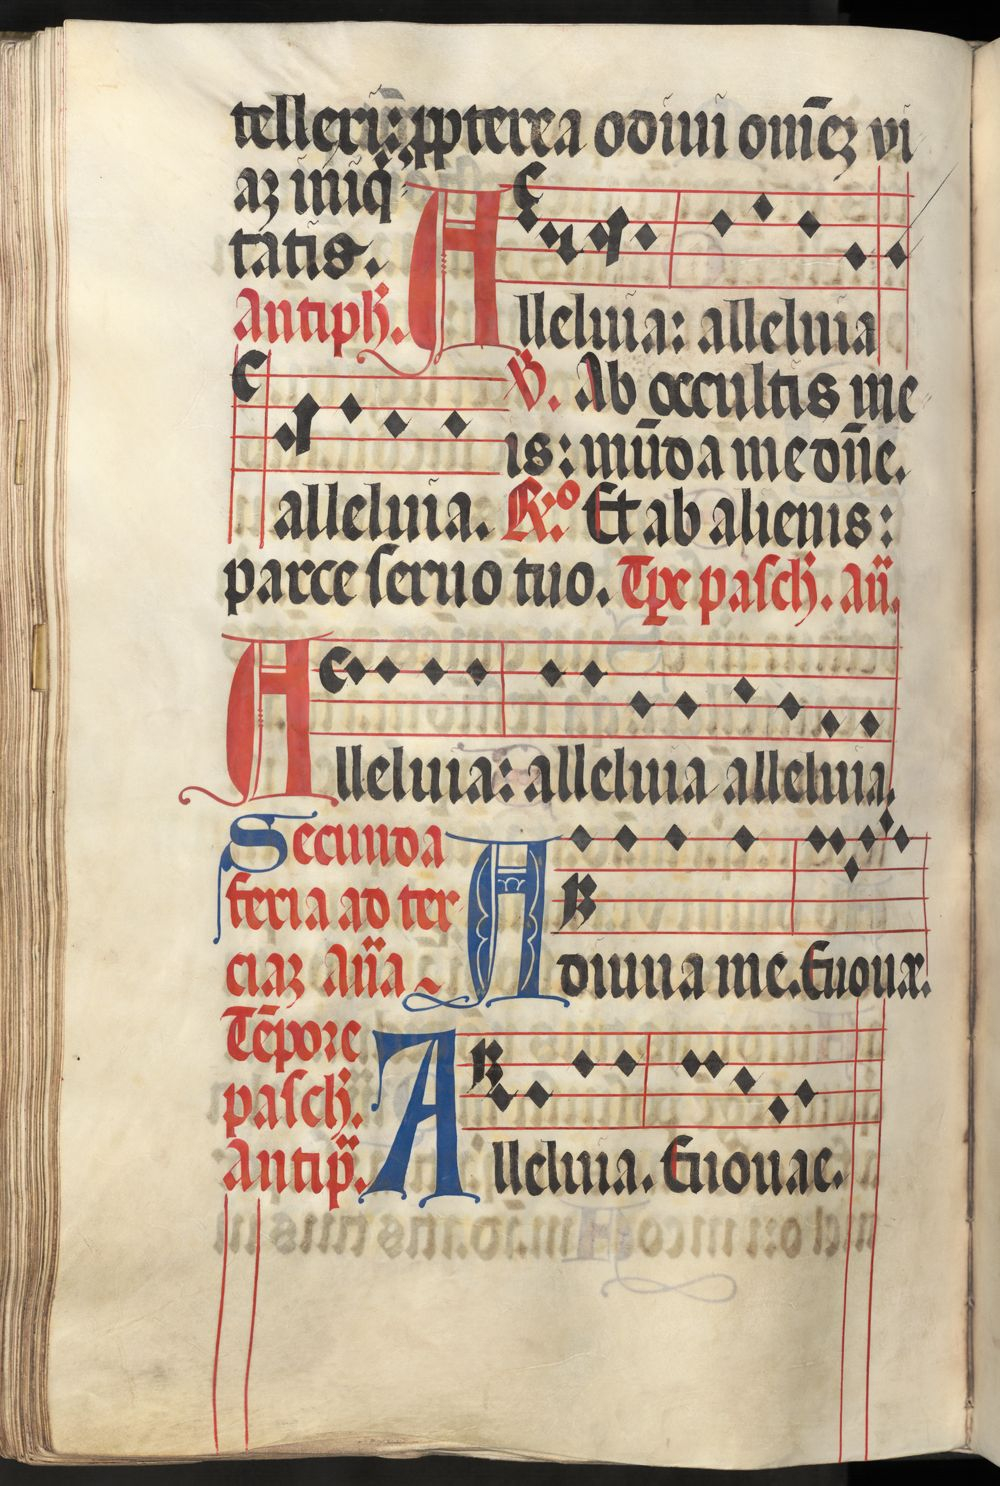 tellexi: ꝓpterea odiui om̄eꝫ vi
aꝫ iniq̈
tatis.
Antiph̄.
Alleluia: alleluia
℣. Ab occultis me
is: mūda me dn̄e.
alleluia. ℟.º Et ab alienis:
parce seruo tuo. Tp̄e pasch̄. an̄.
Alleluia: alleluia alleluia.
Secunda
feria ad ter
ciaꝫ Ana
Adiuua me. Euouae.
Tēpore
pasch̄.
Antip̄.
Alleluia. Euouae.